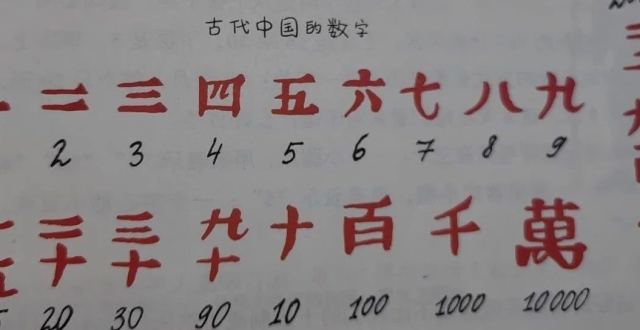 古代中国的数字
二 三 四 五 六 七 八 九
2 3 4 5 6 7 8 9
二十 三十 九十 十 百 千 萬
20 30 90 10 100 1000 10000